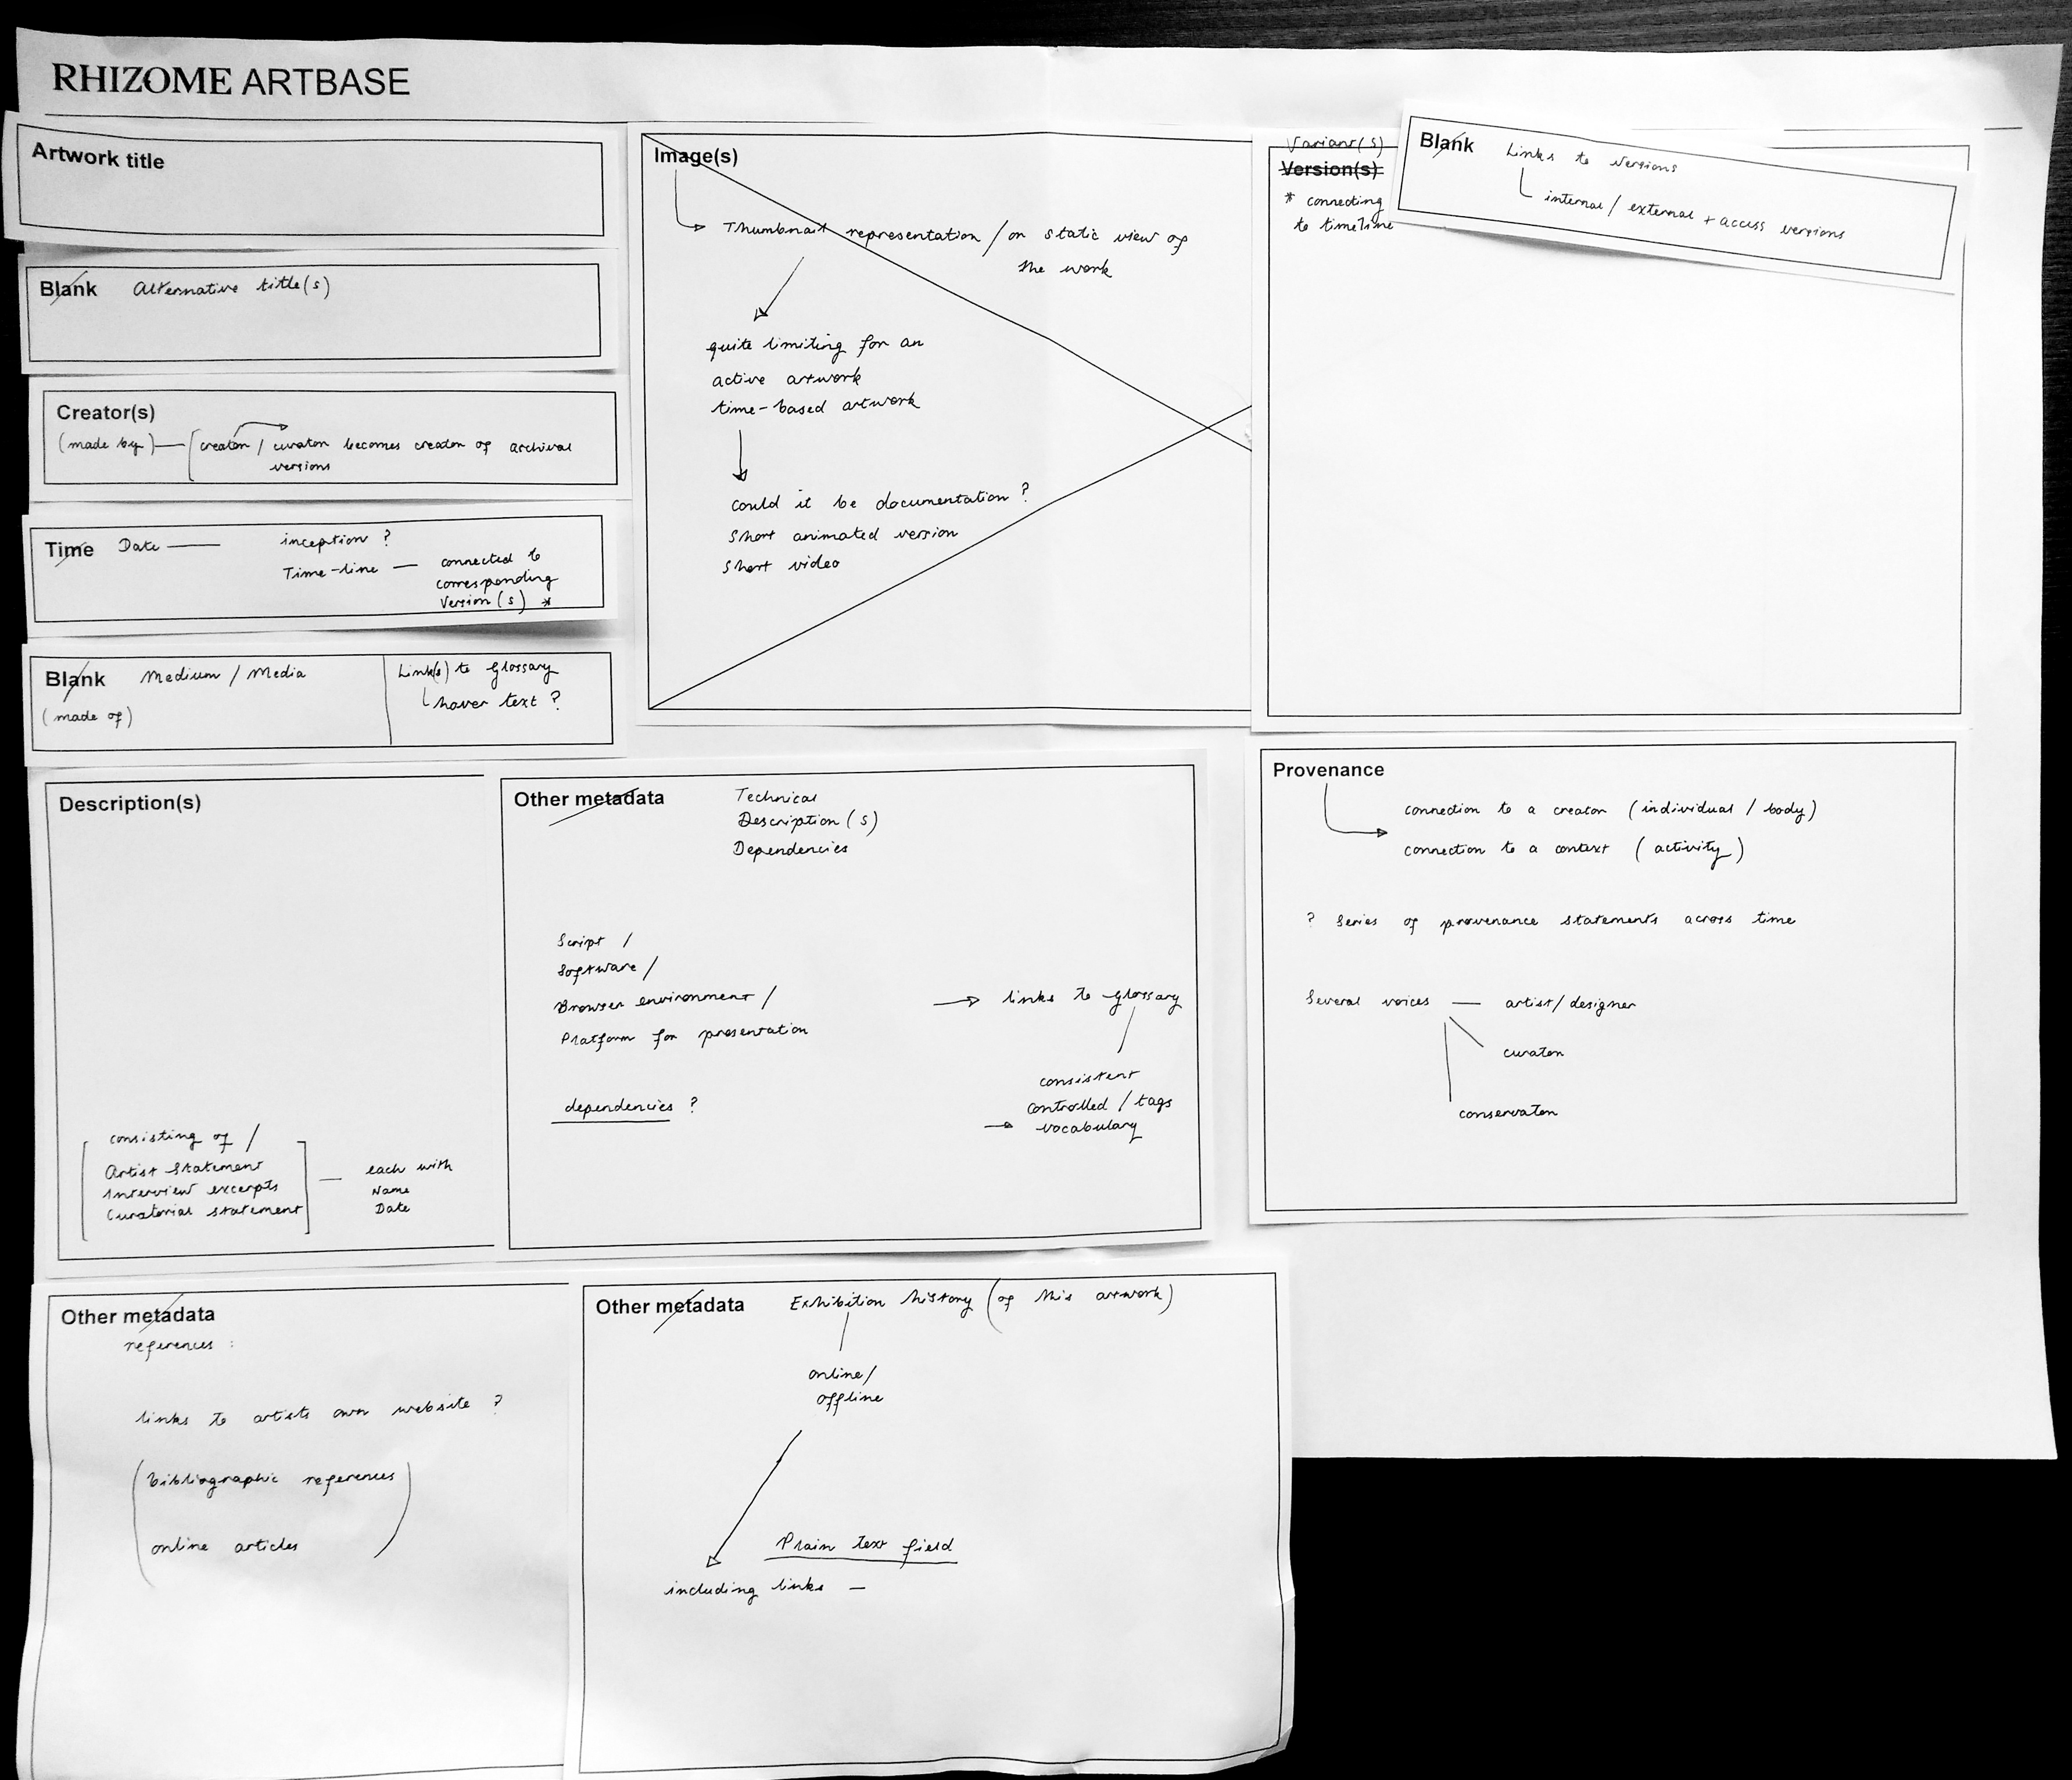 RHIZOME ARTBASE
Artwork title
Blank Alternative title(s)
Creator(s)
(made by) — creator / curator becomes creator of archival
versions
Time Date — inception ?
Time-line — connected to
corresponding
Version(s) *
Blank Medium / Media
(made of)
Link(s) to glossary
hover text ?
Image(s)
Thumbnail representation / or static view of
the work
quite limiting for an
active artwork
time-based artwork
could it be documentation ?
short animated version
short video
Variant(s)
Version(s)
* connecting
to timeline
Blank Links to versions
internal / external + access versions
Description(s)
consisting of /
Artist statement
Interview excerpts
Curatorial statement
— each with
Name
Date
Other metadata Technical
Description(s)
Dependencies
Script /
Software /
Browser environment /
Platform for presentation
dependencies ?
links to glossary
consistent
controlled / tags
vocabulary
Provenance
connection to a creator (individual / body)
connection to a context (activity)
? Series of provenance statements across time
Several voices — artist/designer
curator
conservator
Other metadata
references :
links to artists own website ?
(bibliographic references
online articles)
Other metadata Exhibition history (of this artwork)
online/
offline
Plain text field
including links —